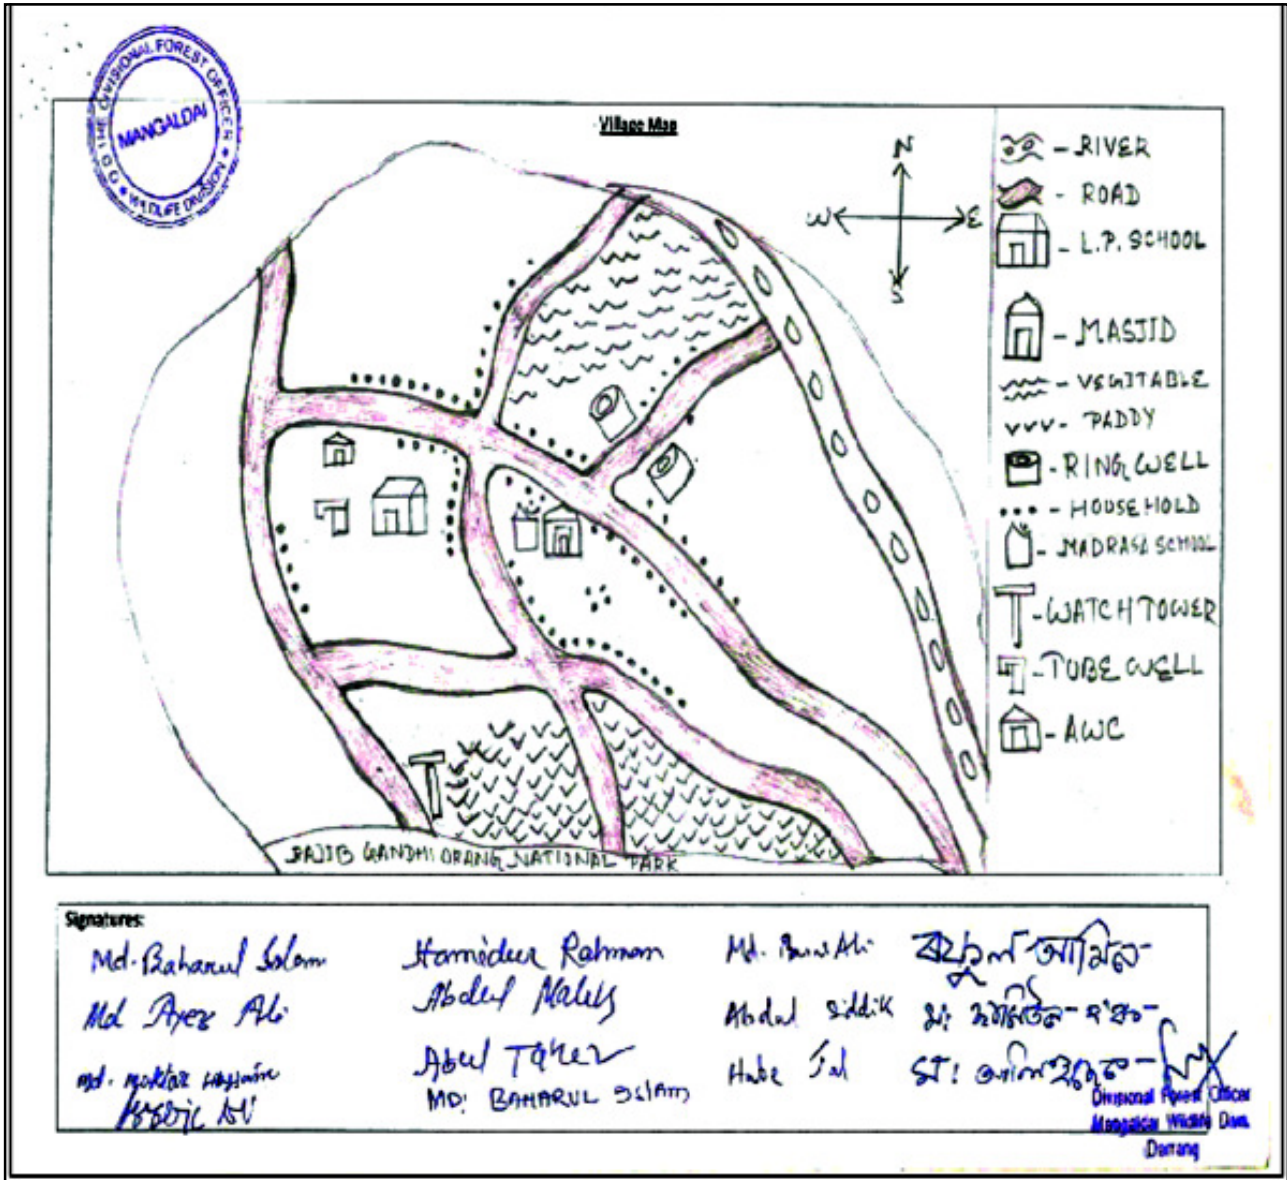 O/O THE DIVISIONAL FOREST OFFICER
MANGALDAI
WILDLIFE DIVISION
Village Map
N
W E
S
- RIVER
- ROAD
- L.P. SCHOOL
- MASJID
- VEGITABLE
- PADDY
- RING WELL
- HOUSE HOLD
- MADRASA SCHOOL
- WATCH TOWER
- TUBE WELL
- AWC
RAJIB GANDHI ORANG NATIONAL PARK
Signatures:
Md. Baharul Islam
Hamidur Rahman
Md. Ali
আমিন
Md Ayez Ali
Abdul Malek
Abdul Siddik
Abul Taher
MD: BAHARUL ISlAM
Divisional Forest Officer
Mangaldai Wildlife Divn.
Darrang